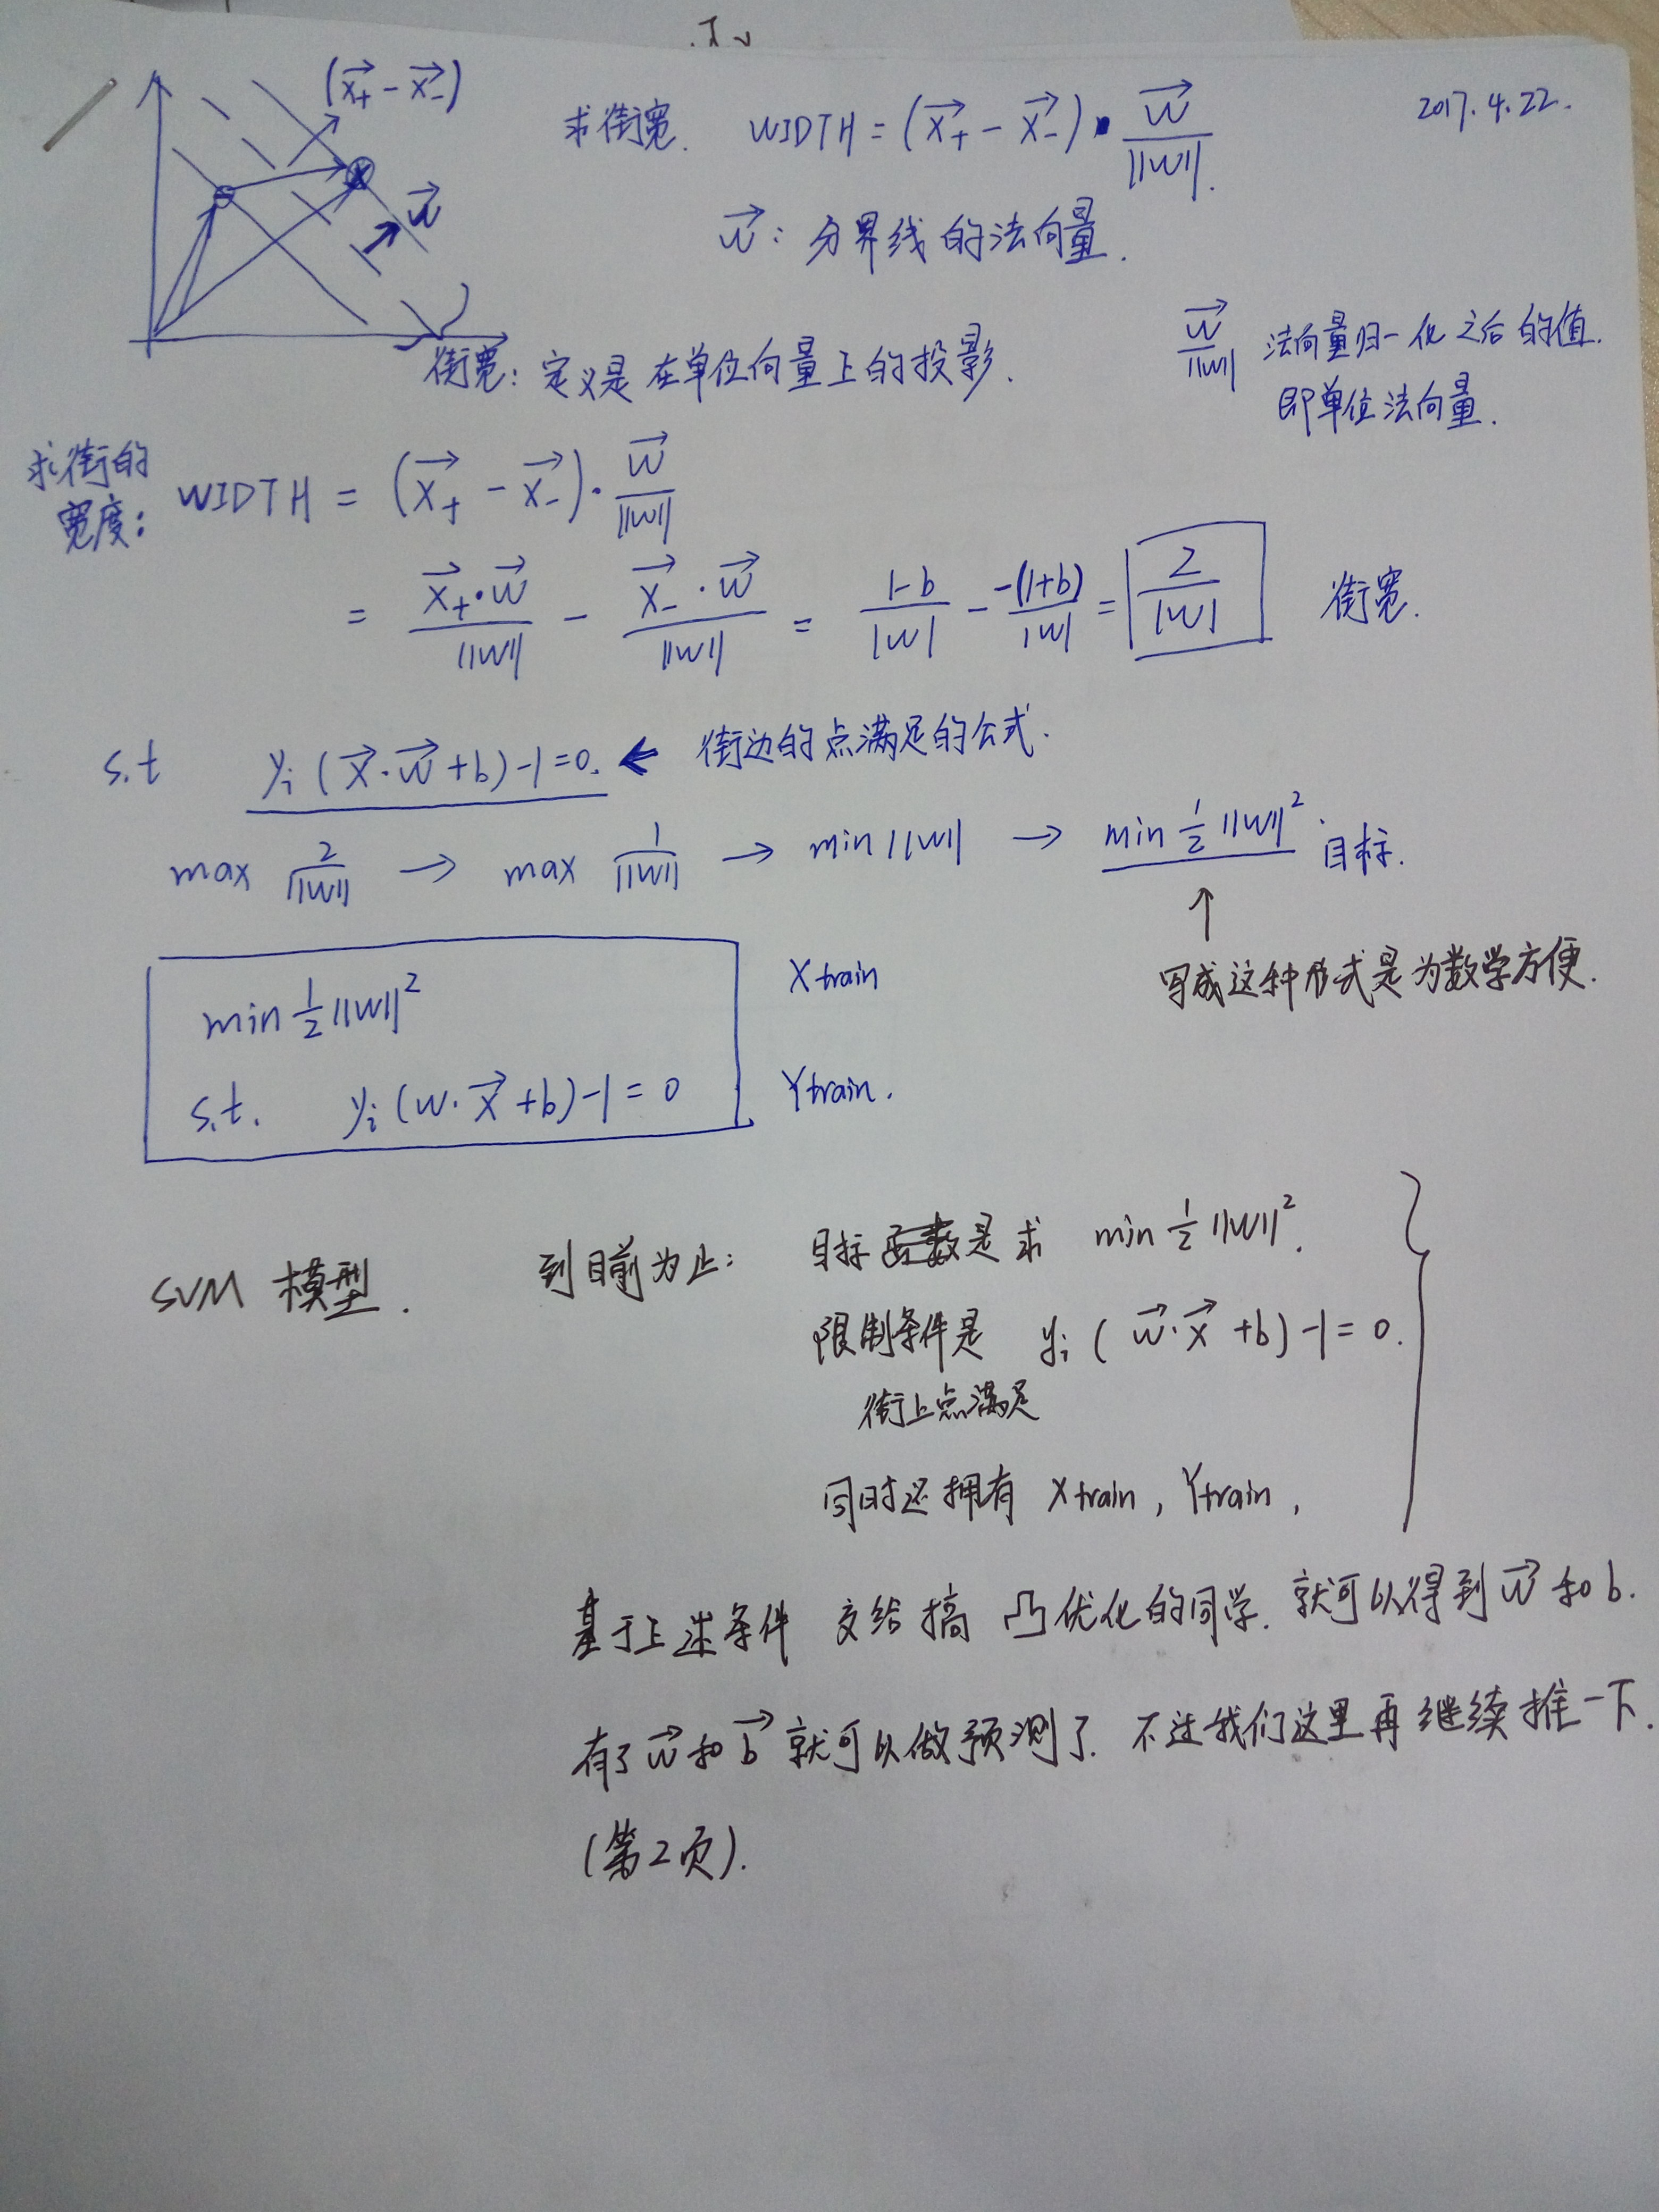 2017.4.22.
(x⃗₊ - x⃗₋)
求街宽. WIDTH = (x⃗₊ - x⃗₋) · w⃗/||w||.
w⃗
w⃗: 分界线的法向量.
街宽: 定义是在单位向量上的投影.
w⃗/||w|| 法向量归一化之后的值.
即单位法向量.
求街的
宽度: WIDTH = (x⃗₊ - x⃗₋) · w⃗/||w||
= x⃗₊·w⃗/||w|| - x⃗₋·w⃗/||w|| = 1-b/|w| - -(1+b)/|w| = 2/|w| 街宽.
s.t yᵢ(x⃗·w⃗+b)-1=0. ← 街边的点满足的公式.
max 2/||w|| → max 1/||w|| → min ||w|| → min ½||w||². 目标.
↑
写成这种形式是为数学方便.
min ½||w||² Xtrain
s.t. yᵢ(w·x⃗+b)-1=0 Ytrain.
SVM 模型. 到目前为止: 目标函数是求 min ½||w||².
限制条件是 yᵢ(w⃗·x⃗+b)-1=0.
街上点满足
同时还拥有 Xtrain, Ytrain,
基于上述条件 交给搞 凸优化的同学. 就可以得到w⃗和b.
有了w⃗和b⃗就可以做预测了. 不过我们这里再继续推一下.
(第2页).